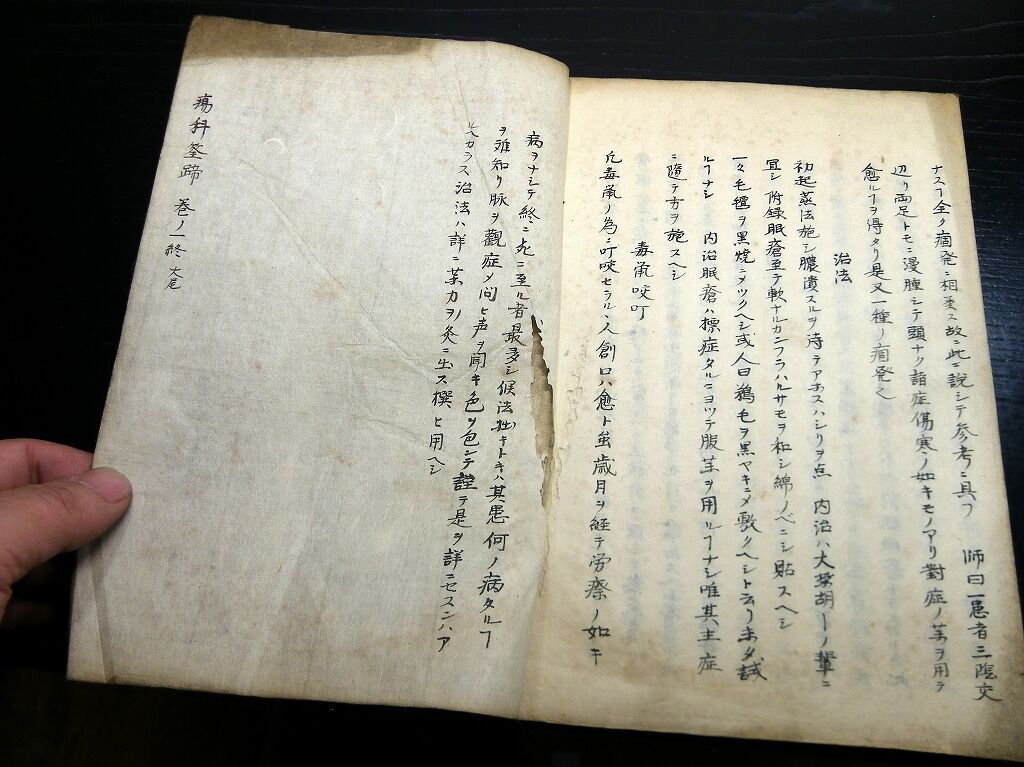 ナスヿ全ク痼発ニ相类ス故ニ此ニ説シテ参考ニ具フ 師曰一患者三陰交
辺リ両足トモニ漫腫シテ頭ナク諸症傷寒ノ如キモノアリ對症ノ茱ヲ用テ
愈ルヿヲ得タリ是又一種ノ痼発
治法
初起蒸法施シ膿潰スルヲ待テアホスハシリヲ点 内治ハ大柴胡ーノ輩ニ
宜シ附録眠瘡至テ軟ナルカンフラハルサモヲ和シ綿ノベニシ貼スヘシ
毛氊ヲ黒焼ニメツクヘシ或人曰鵜毛ヲ黒ヤキニメ敷クヘシト云リ未タ試
ルヿナシ 内治眠瘡ハ標症タルニヨツテ服茱ヲ用ルヿナシ唯其主症
ニ隨テ方ヲ施スヘシ
毒䑕咬叮
凢毒䑕ノ為ニ叮咬セラルヽ人創口ハ愈ト虽歳月ヲ経テ労瘵ノ如キ
病ヲナシテ終ニ死ニ至ル者最多シ候法拙キトキハ其患何ノ病タルヿ
ヲ難知リ脉ヲ觀症メ問ヒ声ヲ聞キ色ヲ包シテ詮テ是ヲ詳ニセスンハア
ルヘカラス治法ハ詳ニ茱力ヲノ灸ニ出ス撰ヒ用ヘシ
瘍科筌蹄 巻ノ一終 大尾